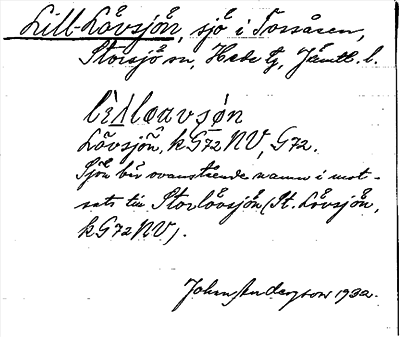 Lill-Lövsjön, sjö i Torråsen,
Storsjö sn, Hede tg, Jämtl. l.
lɛ̀lløavsjøn
Lövsjön, k G72 NV, G72.
Sjön bär ovanstående namn i mot-
sats till Storlövsjön (St. Lövsjön,
k G72 NV).
Johan Anderson 1932.